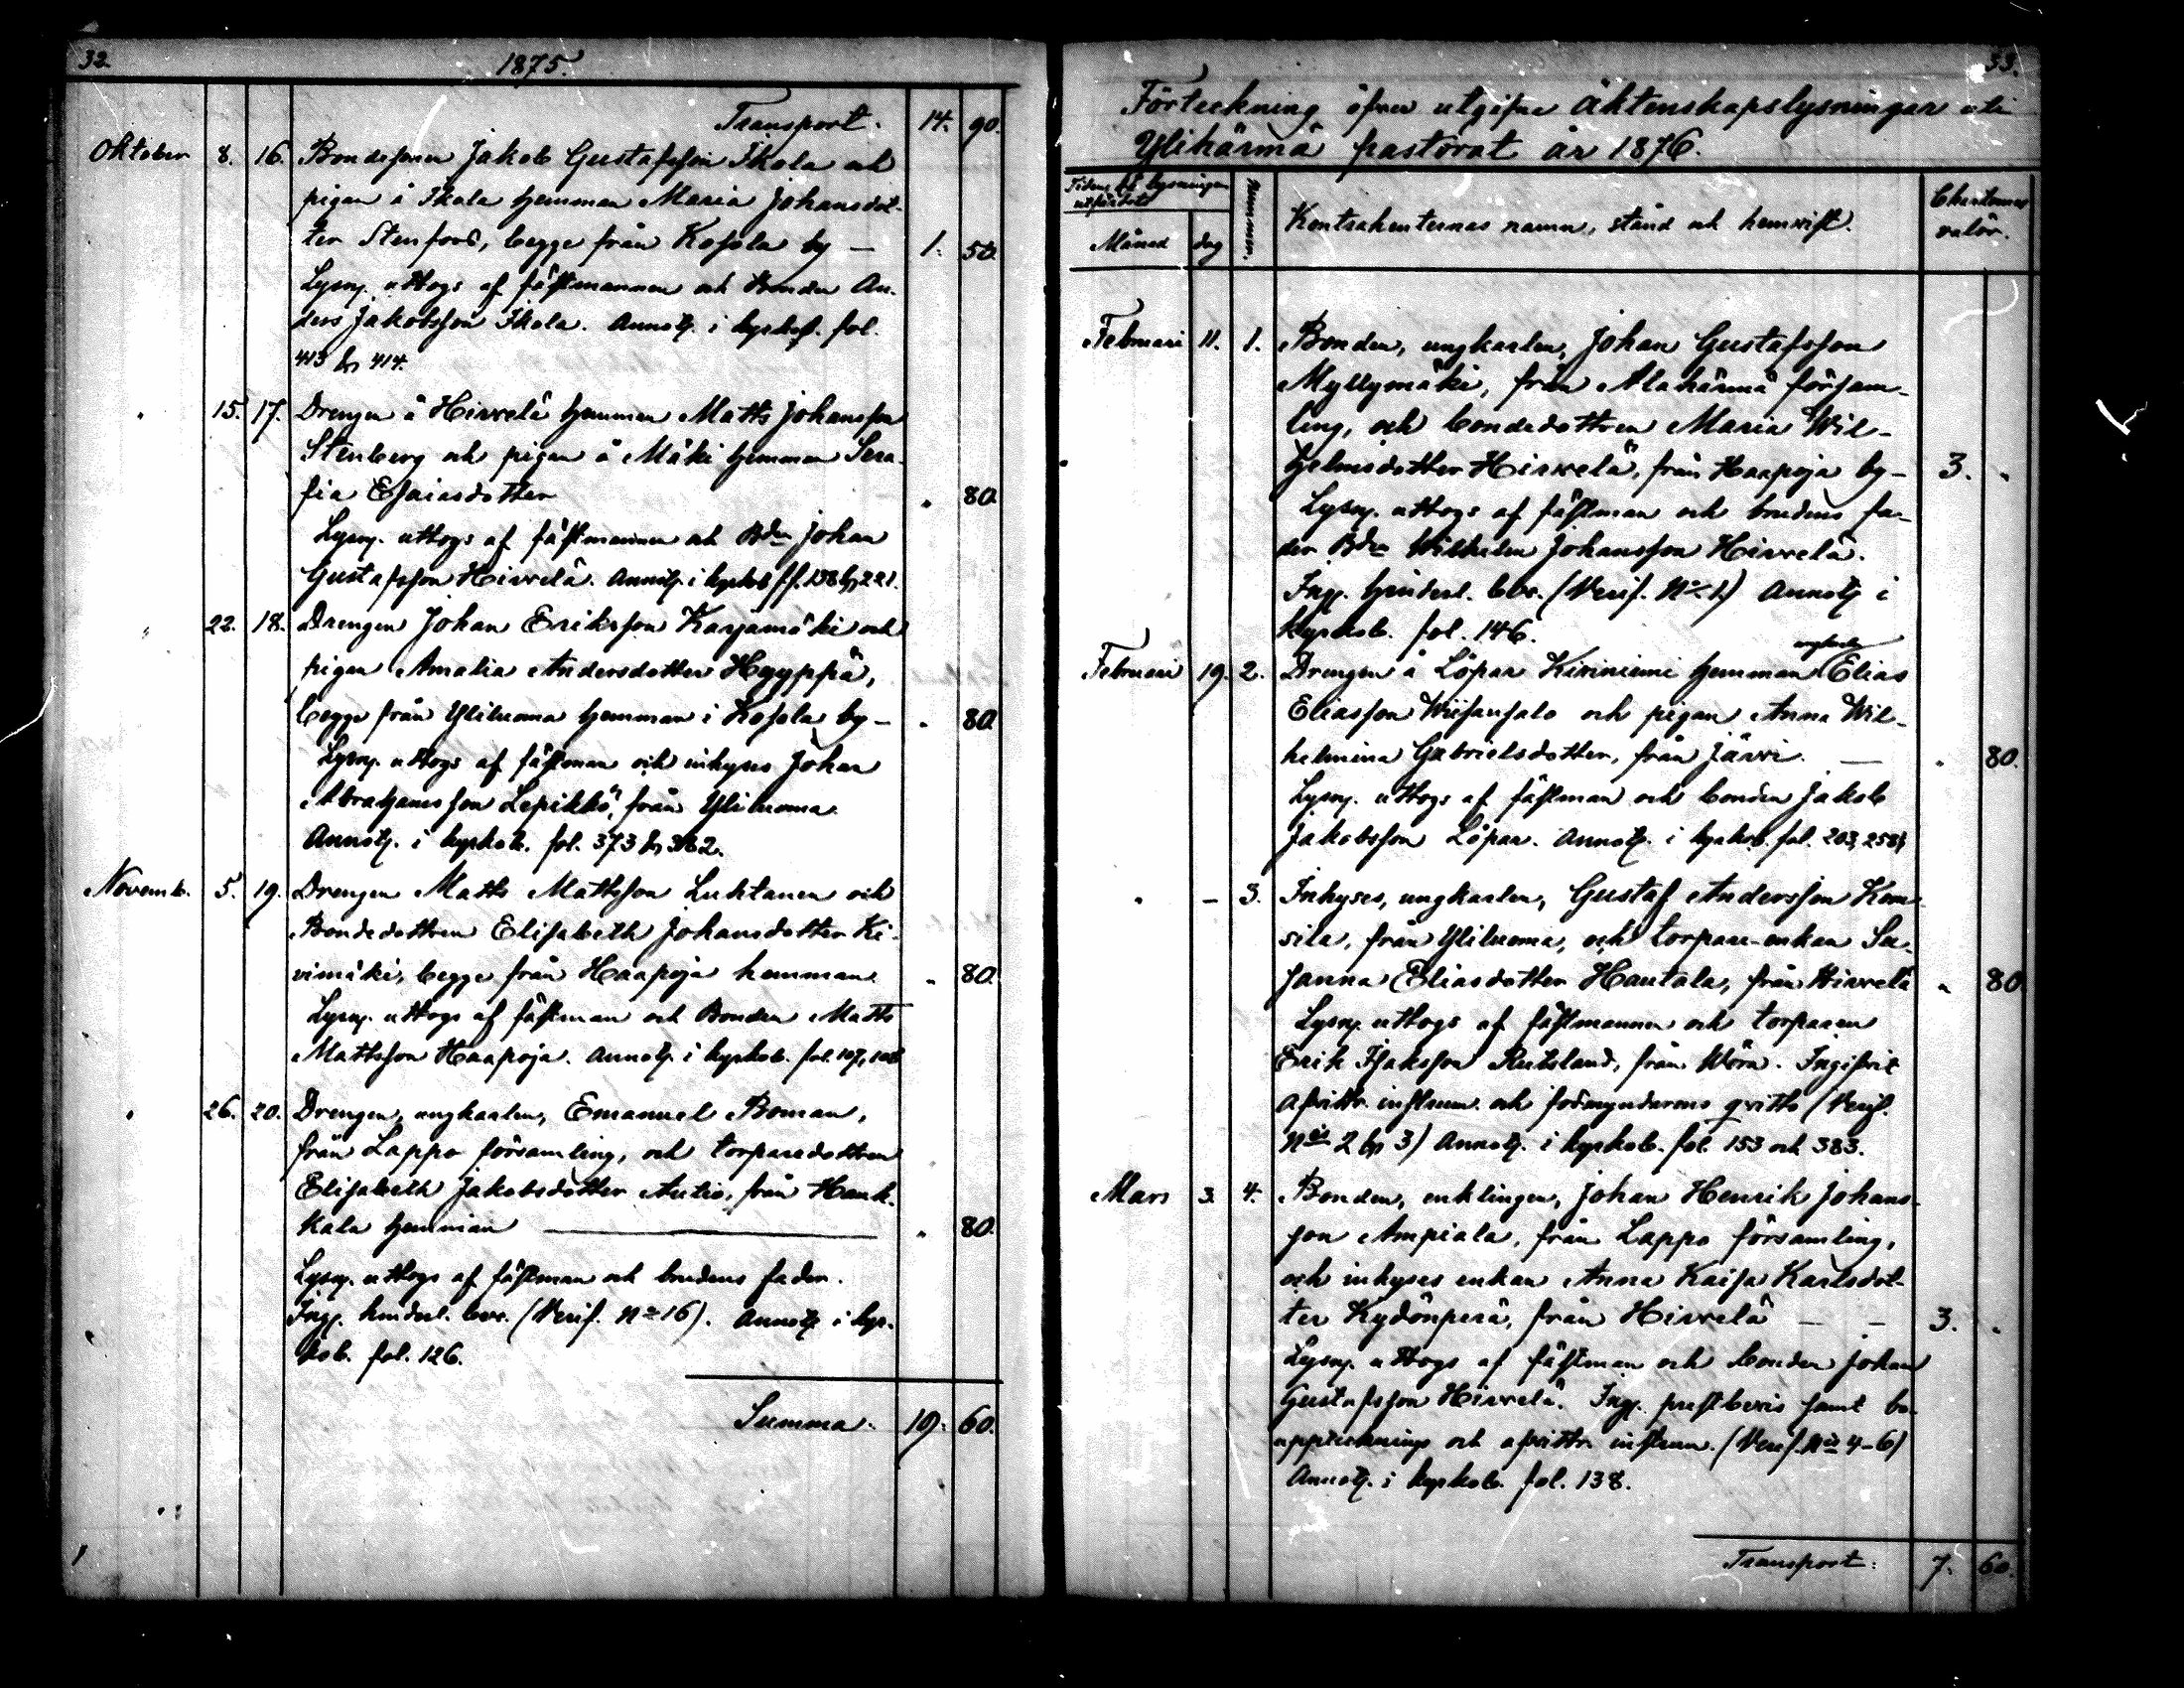 32.
1875.
Transport. 14. 90.
Oktober 8. 16. Bondesonen Jakob Gustafsson Ikola och
pigan å Ikola hemman Maria Johansdot-
ter Stenfors, begge från Kosola by — 1. 50.
Lysng. uttogs af fästmannen och Bonden An-
ders Jakobsson Ikola. Annotg. i kyrkob. fol.
413 & 414.
" 15. 17. Drengen å Hirvelä hemman Matts Johansson
Stenberg och pigan å Mäki hemman Sera-
fia Esaiasdotter " 80.
Lysng. uttogs af fästmannen och Bdn Johan
Gustafsson Hirvelä. Annotg. i kyrkob. ff. 138 & 221.
" 22. 18. Drengen Johan Eriksson Karjamäki och
pigan Amalia Andersdotter Hyyppä,
begge från Yliluoma hemman i Kosola by — " 80.
Lysng. uttogs af fästman och inhyses Johan
Abrahamsson Lepikkö, från Yliluoma.
Annotg. i kyrkob. fol. 373 & 382.
Novemb. 5. 19. Drengen Matts Mattsson Luhtanen och
Bondedottren Elisabeth Johansdotter Ki-
vimäki, begge från Haapoja hemman. " 80.
Lysng. uttogs af fästman och Bonden Matts
Mattsson Haapoja. Annotg. i kyrkob. fol. 107, 108
" 26. 20. Drengen, ungkarlen, Emanuel Boman,
från Lappo församling, och torparedottren
Elisabeth Jakobsdotter Autio, från Hauk-
kala hemman — " 80.
Lysng. uttogs af fästman och brudens fader.
Ing. hinderl. bev. (Verif. No 16). Annotg. i kyr-
kob. fol. 126.
Summa. 19. 60.
33.
Förteckning öfver utgifna Äktenskapslysningar uti
Ylihärmä pastorat år 1876.
Tiden då lysningen
utfärdats
Månad dag
Nummer.
Kontrahenternas namn, stånd och hemvist.
Chartornas
valör.
Februari 11. 1. Bonden, ungkarlen, Johan Gustafsson
Myllymäki, från Alahärmä försam-
ling, och bondedottren Maria Wil-
helmsdotter Hirvelä, från Haapoja by — 3. "
Lysng. uttogs af fästman och brudens fa-
der Bdn Wilhelm Johansson Hirvelä.
Ing. hinderl. bev. (Verif. No 1) Annotg. i
kyrkob. fol. 146.
ungkarlen
Februari 19. 2. Drengen å Löpar Kiviniemi hemman Elias
Eliasson Wiisansalo och pigan Anna Wil-
helmina Gabrielsdotter, från Järvi. — " 80.
Lysng. uttogs af fästman och bonden Jakob
Jakobsson Löpar. Annotg. i kyrkob. fol. 203, 258,
" — 3. Inhyses, ungkarlen, Gustaf Andersson Kom-
sila, från Yliluoma, och torpare-enkan Su-
sanna Eliasdotter Hautala, från Hirvelä " 80
Lysng. uttogs af fästmannen och torparen
Erik Isaksson Rutsland, från Wörå. Ingifvit
afvittr. instrum. och förmyndarens qvitto (Verif.
Nis 2 & 3) Annotg. i kyrkob. fol. 153 och 383.
Mars 3. 4. Bonden, enklingen, Johan Henrik Johans-
son Ampiala, från Lappo församling,
och inhyses enkan Anna Kaisa Karlsdot-
ter Kydönperä, från Hirvelä — — 3. "
Lysng. uttogs af fästman och bonden Johan
Gustafsson Hirvelä. Ing. prestbevis samt bo-
upptecknings och afvittr. instrum. (Verif. Nis 4-6)
Annotg. i kyrkob. fol. 138.
Transport: 7. 60.